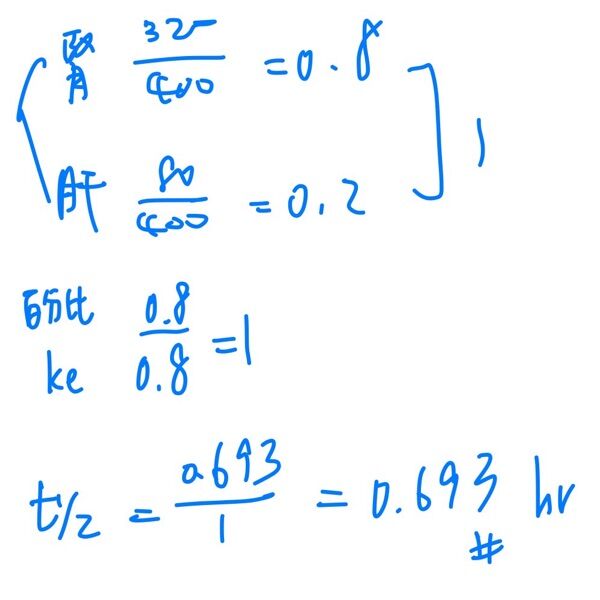 腎 320/400 = 0.8
肝 80/400 = 0.2
1
百分比 0.8/0.8 = 1
ke
t1/2 = 0.693/1 = 0.693 hr
#